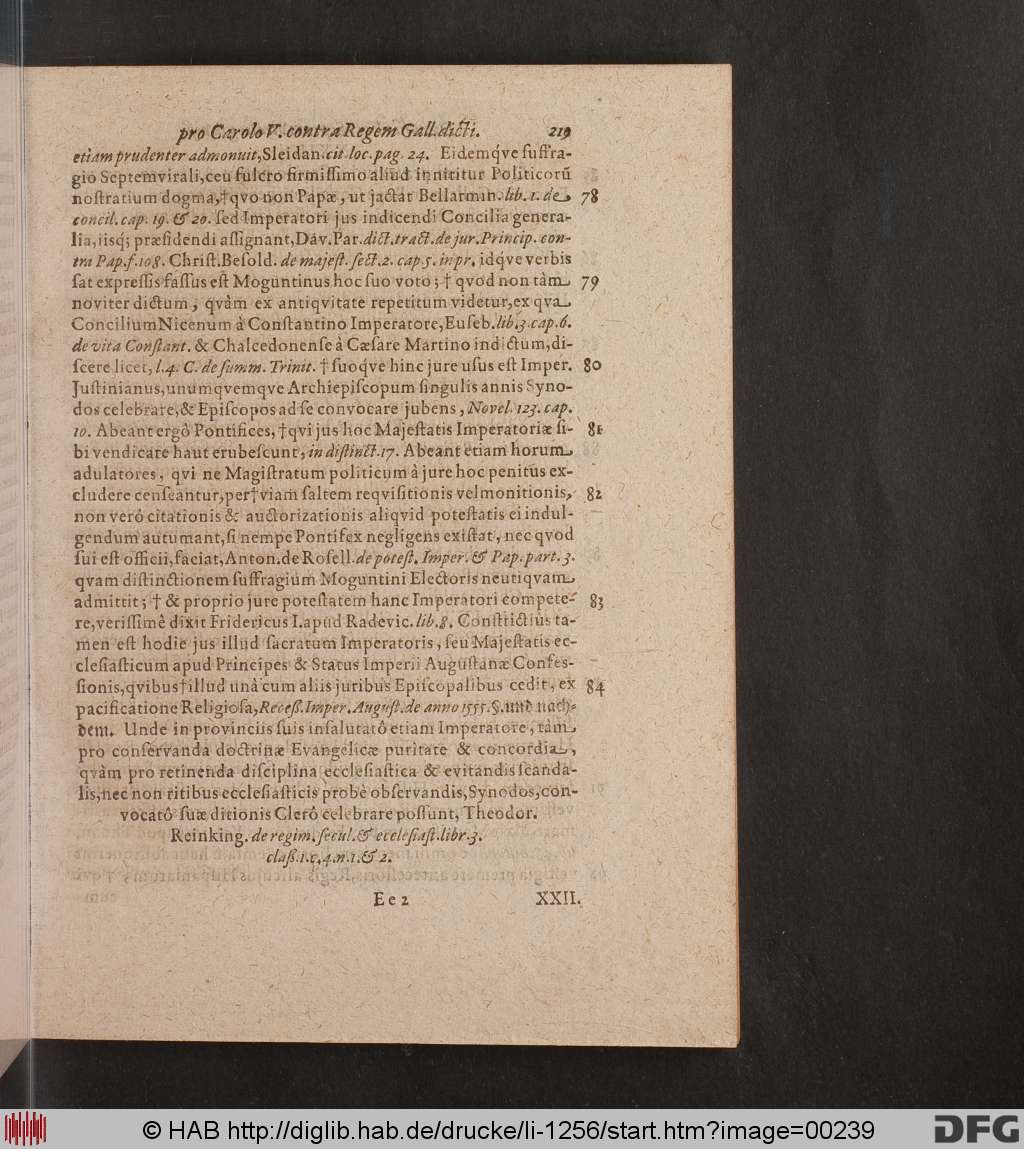 pro Carolo V. contra Regem Gall. dicti. 219
etiam prudenter admonuit, Sleidan. cit. loc. pag. 24. Eidemq́ve ſuffra-
gio Septemvirali, ceu fulcro firmiſſimo aliud innititur Politicorũ
noſtratium dogma, † qvo non Papæ, ut jactat Bellarmin. lib. 1. de 78
concil. cap. 19. & 20. ſed Imperatori jus indicendi Concilia genera-
lia, iisq́; præſidendi aſſignant, Dav. Par. dict. tract. de jur. Princip. con-
tra Pap. f. 108. Chriſt. Beſold. de majeſt. ſect. 2. cap. 5. in pr. idq́ve verbis
ſat expreſſis faſſus eſt Moguntinus hoc ſuo voto; † qvod non tàm 79
noviter dictum, qvàm ex antiqvitate repetitum videtur, ex qva
Concilium Nicenum à Conſtantino Imperatore, Euſeb. lib. 3. cap. 6.
de vita Conſtant. & Chalcedonenſe à Cæſare Martino indictum, di-
ſcere licet, l. 4. C. de ſumm. Trinit. † ſuoq́ve hinc jure uſus eſt Imper. 80
Juſtinianus, unumqvemqve Archiepiſcopum ſingulis annis Syno-
dos celebrare, & Epiſcopos ad ſe convocare jubens, Novel. 123. cap.
10. Abeant ergò Pontifices, † qvi jus hoc Majeſtatis Imperatoriæ ſi- 81
bi vendicare haut erubeſcunt, in diſtinct. 17. Abeant etiam horum
adulatores, qvi ne Magiſtratum politicum à jure hoc penitus ex-
cludere cenſeantur, per † viam ſaltem reqviſitionis vel monitionis, 82
non verò citationis & auctorizationis aliqvid poteſtatis ei indul-
gendum autumant, ſi nempe Pontifex negligens exiſtat, nec qvod
ſui eſt officii, faciat, Anton. de Roſell. de poteſt. Imper. & Pap. part. 3.
qvam diſtinctionem ſuffragium Moguntini Electoris neutiqvam
admittit; † & proprio jure poteſtatem hanc Imperatori compete- 83
re, veriſſimè dixit Fridericus I. apud Radevic. lib. 8. Conſtrictius ta-
men eſt hodie jus illud ſacratum Imperatoris, ſeu Majeſtatis ec-
cleſiaſticum apud Principes & Status Imperii Auguſtanæ Confes-
ſionis, qvibus † illud unà cum aliis juribus Epiſcopalibus cedit, ex 84
pacificatione Religioſa, Receß. Imper. Auguſt. de anno 1555. §. und nach-
dem. Unde in provinciis ſuis inſalutatô etiam Imperatore, tàm
pro conſervanda doctrinæ Evangelicæ puritate & concordia,
qvàm pro retinenda diſciplina eccleſiaſtica & evitandis ſcanda-
lis, nec non ritibus eccleſiaſticis probè obſervandis, Synodos, con-
vocatô ſuæ ditionis Clerô celebrare poſſunt, Theodor.
Reinking. de regim. ſecul. & eccleſiaſt. libr. 3.
claß. 1. c. 4. n. 1. & 2.
Ee 2 XXII.
© HAB http://diglib.hab.de/drucke/li-1256/start.htm?image=00239
DFG